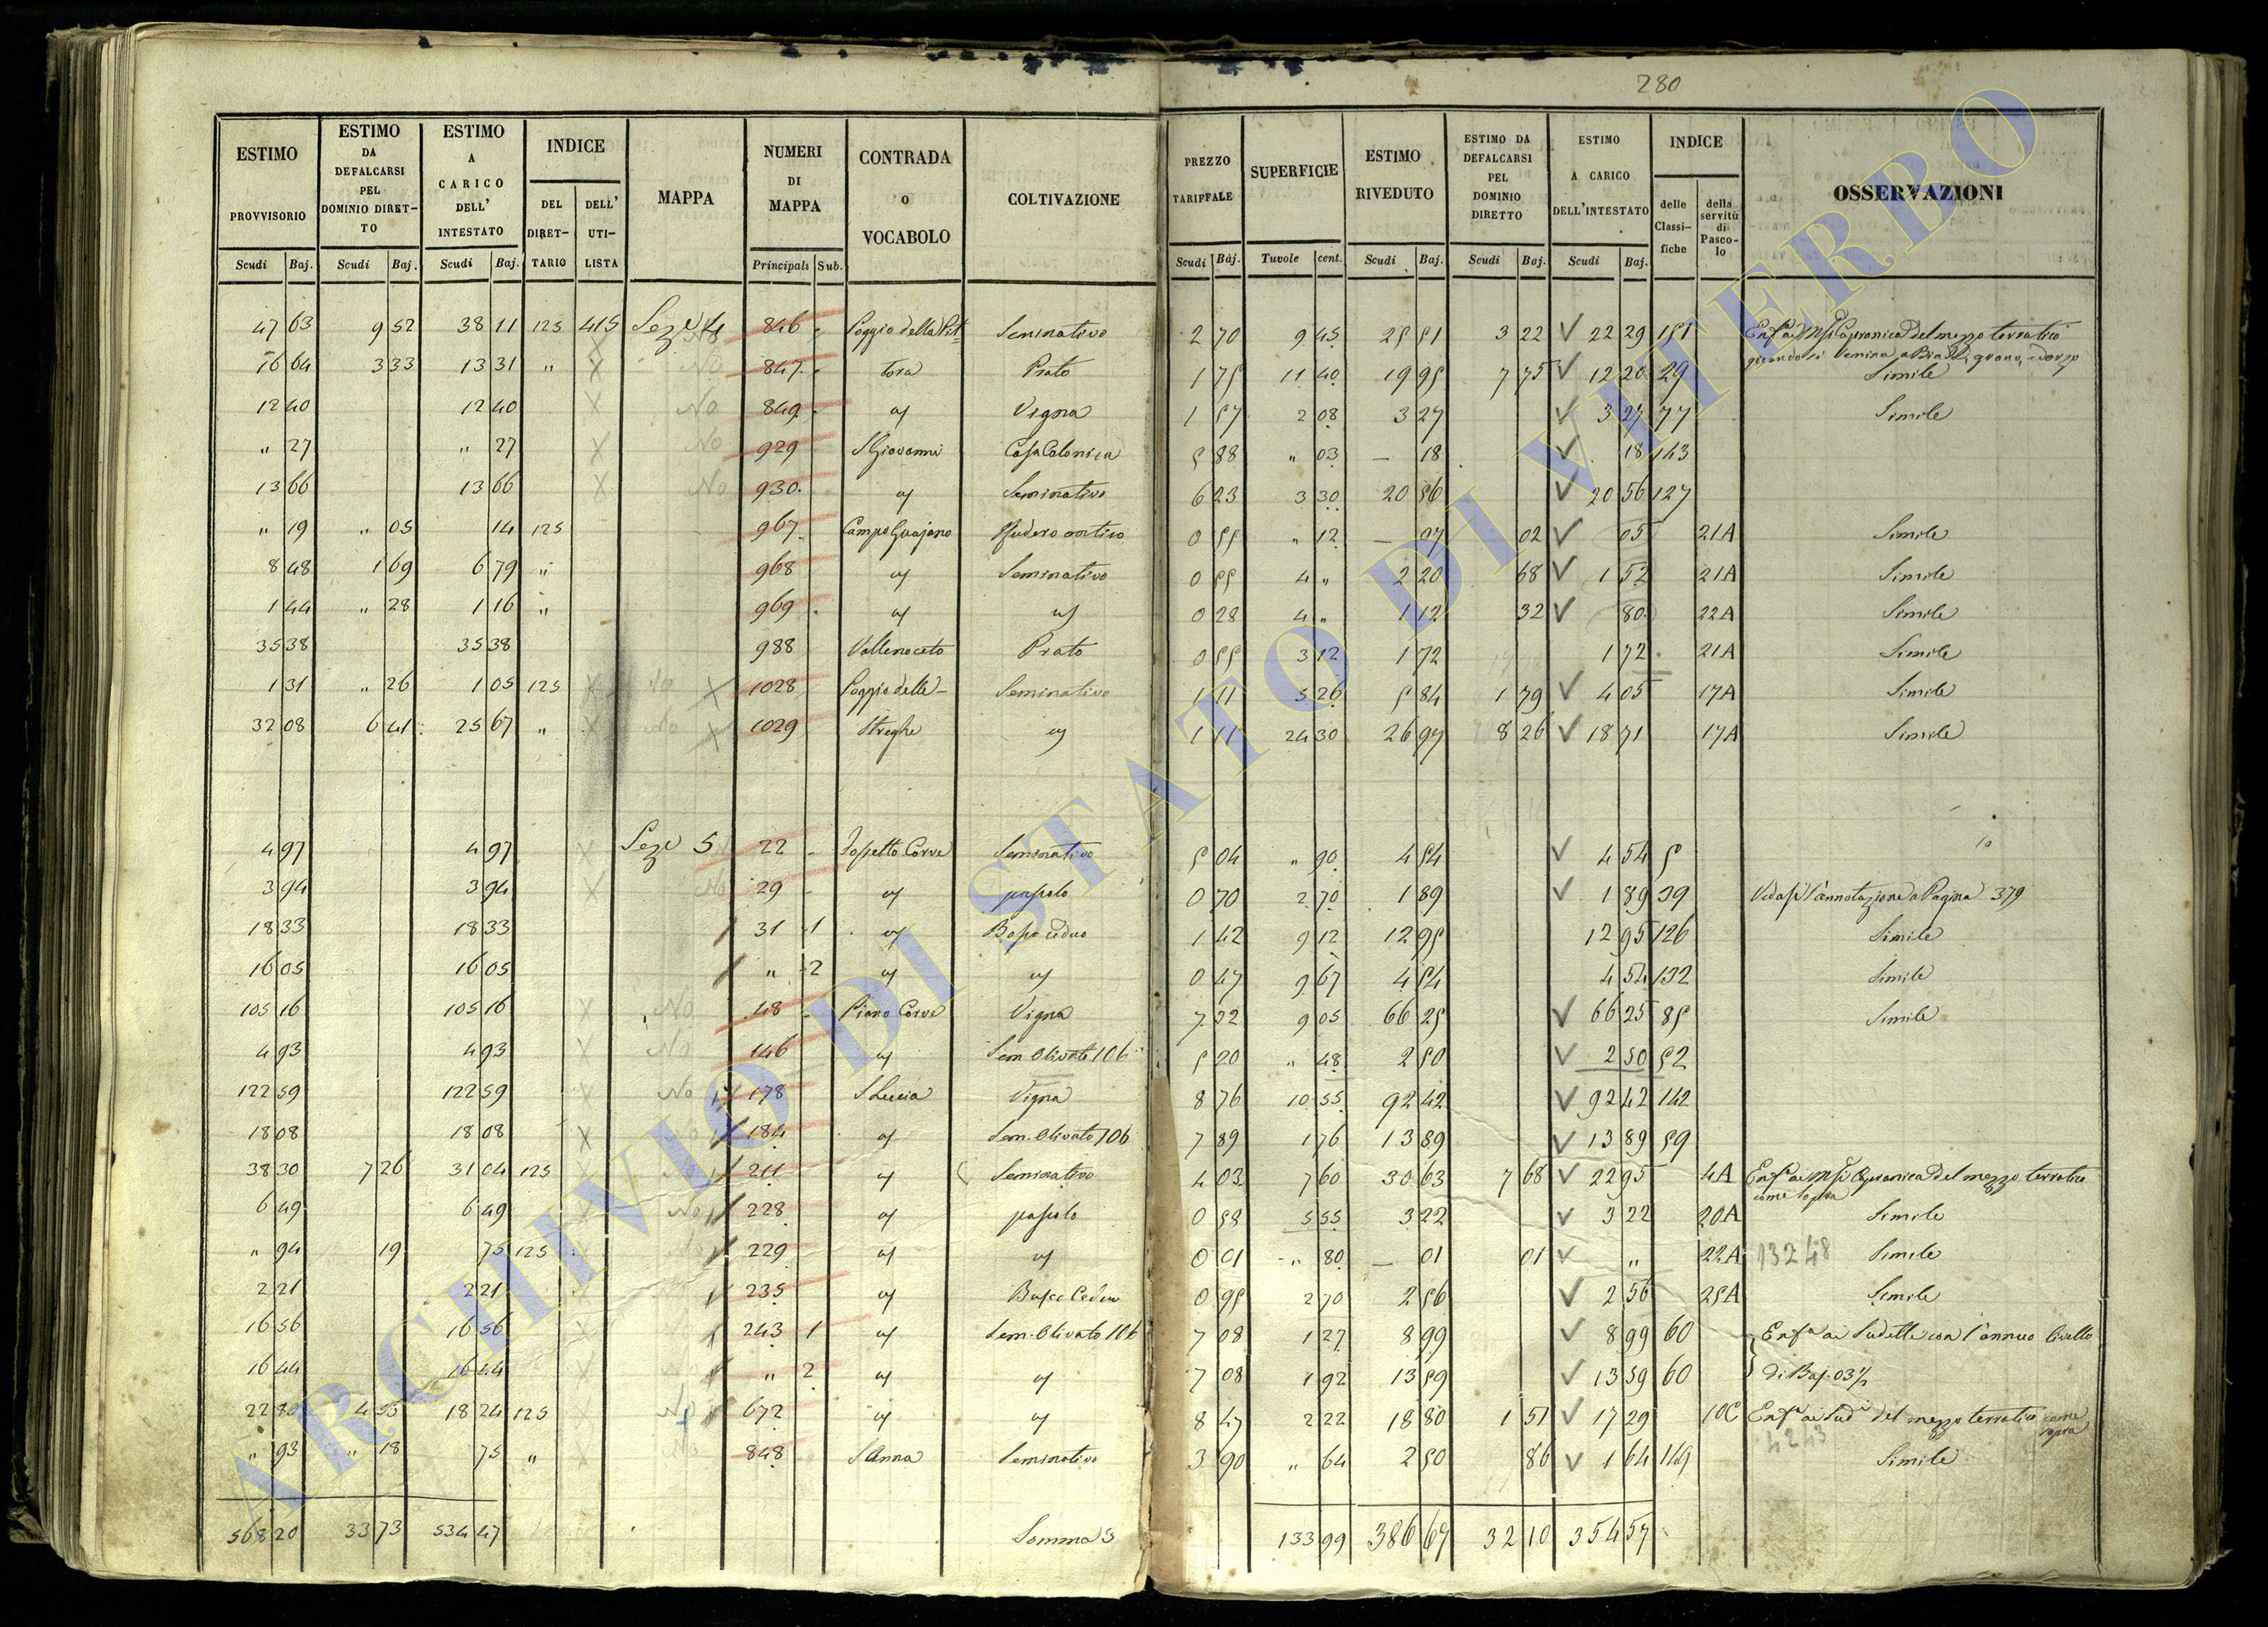 280
ESTIMO PROVVISORIO Scudi Baj. ESTIMO DA DEFALCARSI PEL DOMINIO DIRETTO Scudi Baj. ESTIMO A CARICO DELL' INTESTATO Scudi Baj. INDICE DEL DIRETTARIO DELL' UTILISTA MAPPA NUMERI DI MAPPA Principali Sub. CONTRADA O VOCABOLO COLTIVAZIONE PREZZO TARIFFALE Scudi Baj. SUPERFICIE Tavole cent. ESTIMO RIVEDUTO Scudi Baj. ESTIMO DA DEFALCARSI PEL DOMINIO DIRETTO Scudi Baj. ESTIMO A CARICO DELL'INTESTATO Scudi Baj. INDICE delle Classifiche della servitù di Pascolo OSSERVAZIONI
47 63 9 52 38 11 125 415 Seze 4 846 Poggio della Pit Seminativo 2 70 9 45 25 51 3 22 V 22 29 151 del mezzo terratico
16 64 3 33 13 31 " X No 847 tora Prato 1 75 11 40 19 95 7 75 V 12 20 29 Simile
12 40 12 40 X No 849 Vigna 1 57 2 08 3 27 V 3 27 77 Simile
" 27 " 27 X No 929 S Giovanni Casa Colonica 5 88 " 03 — 18 V 18 143
13 66 13 66 X No 930 Seminativo 6 23 3 30 20 56 V 20 56 127
" 19 " 05 14 125 967 0 55 " 12 — 07 02 V 05 21A Simile
8 48 1 69 6 79 " 968 Seminativo 0 55 4 " 2 20 68 V 1 52 21A Simile
1 44 " 28 1 16 " 969 0 28 4 " 1 12 32 V 80 22A Simile
35 38 35 38 988 Vallenoceto Prato 0 55 3 12 1 72 1 72 21A Simile
1 31 " 26 1 05 125 X No X 1028 Poggio delle- Seminativo 1 11 5 26 5 84 1 79 V 4 05 17A Simile
32 08 6 41 25 67 " X No X 1029 Streghe 1 11 24 30 26 97 8 26 V 18 71 17A Simile
4 97 4 97 X Seze 5 22 Seminativo 5 04 " 90 4 54 V 4 54 5
3 94 3 94 X No 29 pascolo 0 70 2 70 1 89 V 1 89 39 l'annotazione a Pagina 379
18 33 18 33 31 1 Bosco ceduo 1 42 9 12 12 95 12 95 126 Simile
16 05 16 05 " 2 0 47 9 67 4 54 4 54 132 Simile
105 16 105 16 X No 48 Piano Corve Vigna 7 32 9 05 66 25 V 66 25 85 Simile
4 93 4 93 X No 146 Sem. Olivato 106 5 20 " 48 2 50 V 2 50 52
122 59 122 59 X No 178 S Lucia Vigna 8 76 10 55 92 42 V 92 42 142
18 08 18 08 X No 184 Sem. Olivato 106 7 89 1 76 13 89 V 13 89 59
38 30 7 26 31 04 125 211 Seminativo 4 03 7 60 30 63 7 68 V 22 95 4A del mezzo terratico
come sopra
6 49 6 49 No 228 pascolo 0 58 5 55 3 22 V 3 22 20A Simile
" 94 19 75 125 No 229 0 01 " 80 — 01 01 V " 22A 13248 Simile
2 21 2 21 235 Bosco Ceduo 0 95 2 70 2 56 V 2 56 25A Simile
16 56 16 56 X 243 1 Sem. Olivato 106 7 08 1 27 8 99 V 8 99 60 con l'annuo Livello
16 44 16 44 X " 2 7 08 1 92 13 59 V 13 59 60 di Baj. 03½
22 80 4 56 18 24 125 No 672 8 47 2 22 18 80 1 51 V 17 29 10C del mezzo terratico come
sopra
4243
" 93 " 18 75 " X No 848 S Anna Seminativo 3 90 " 64 2 50 86 V 1 64 149 Simile
568 20 33 73 534 47 Somma 133 99 386 67 32 10 354 57
ARCHIVIO DI STATO DI VITERBO